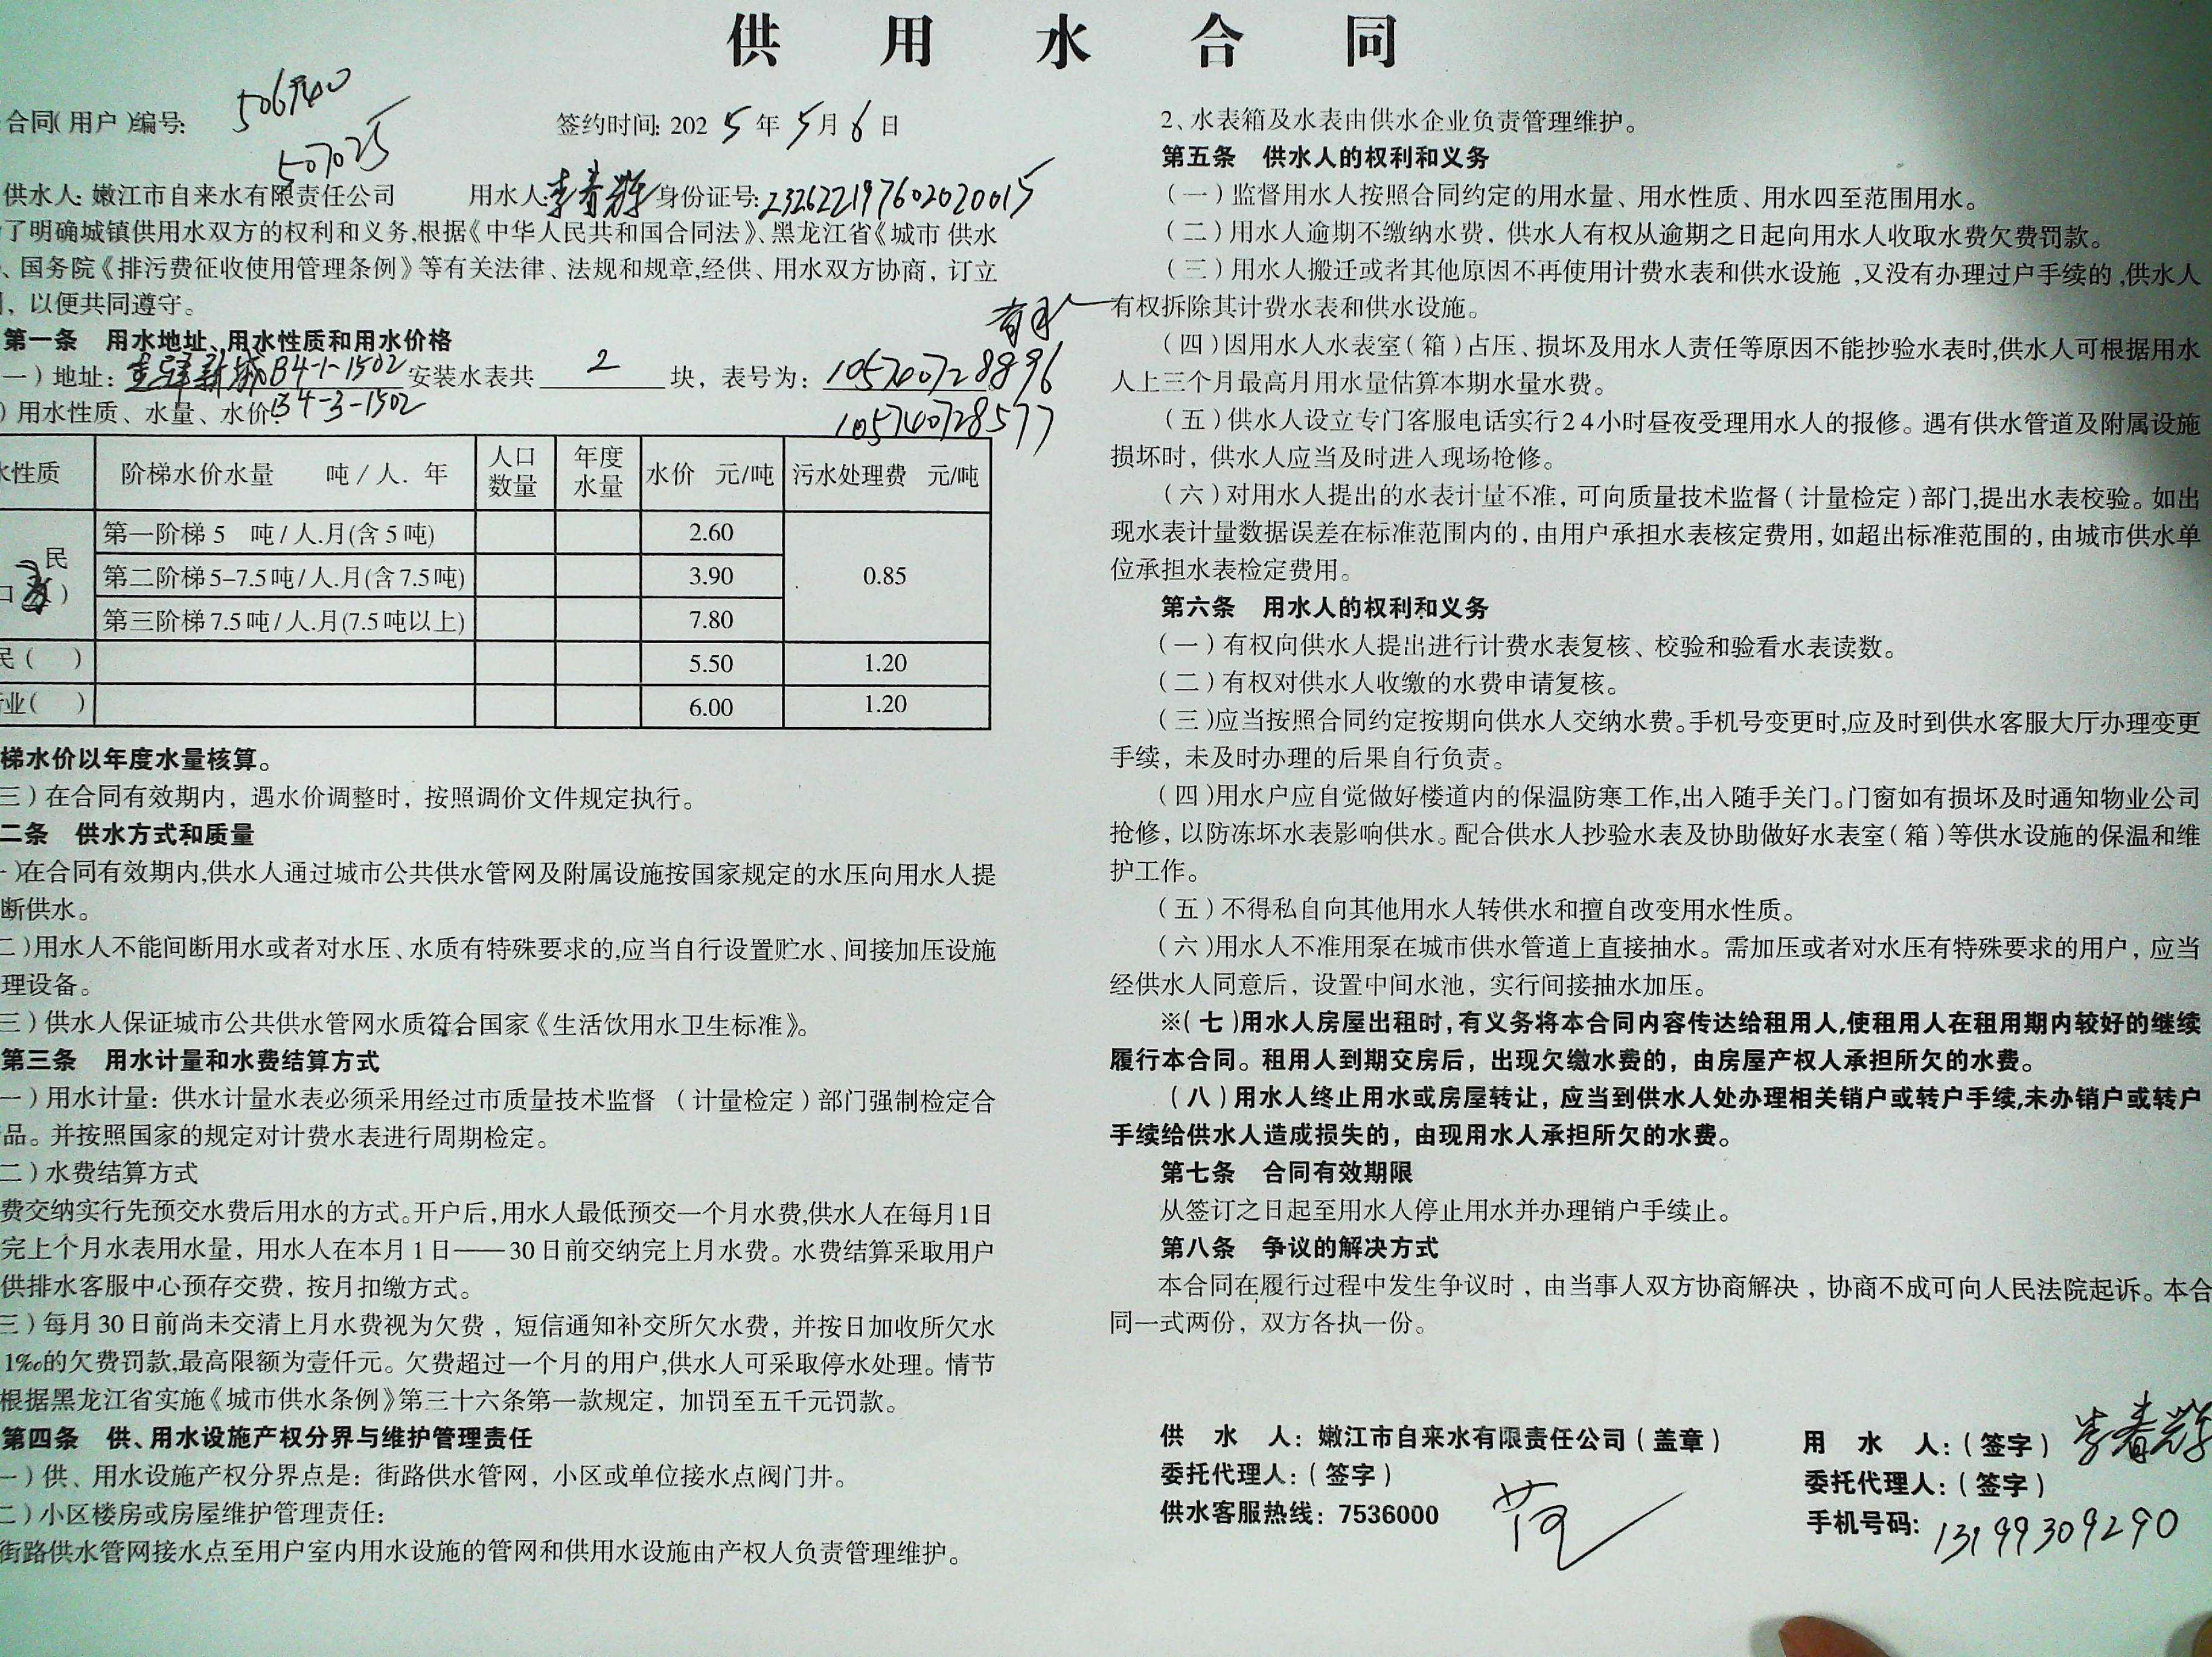 供用水合同
合同(用户)编号: 506740
507025
签约时间: 2025年5月6日
供水人: 嫩江市自来水有限责任公司 用水人: 李春辉 身份证号: 232622197602020015
了明确城镇供用水双方的权利和义务,根据《中华人民共和国合同法》、黑龙江省《城市 供水
、国务院《排污费征收使用管理条例》等有关法律、法规和规章,经供、用水双方协商, 订立
, 以便共同遵守。
第一条 用水地址、用水性质和用水价格
一)地址: 新城B4-1-1502 安装水表共 2 块, 表号为: 105740728896
)用水性质、水量、水价: B4-3-1502 105740728577
水性质 阶梯水价水量 吨/人. 年 人口数量 年度水量 水价 元/吨 污水处理费 元/吨
民 第一阶梯 5 吨/人.月(含5吨) 2.60
第二阶梯5–7.5吨/人.月(含7.5吨) 3.90 0.85
第三阶梯7.5吨/人.月(7.5吨以上) 7.80
民( ) 5.50 1.20
业( ) 6.00 1.20
梯水价以年度水量核算。
三)在合同有效期内, 遇水价调整时, 按照调价文件规定执行。
二条 供水方式和质量
)在合同有效期内,供水人通过城市公共供水管网及附属设施按国家规定的水压向用水人提
断供水。
二)用水人不能间断用水或者对水压、水质有特殊要求的,应当自行设置贮水、间接加压设施
理设备。
三)供水人保证城市公共供水管网水质符合国家《生活饮用水卫生标准》。
第三条 用水计量和水费结算方式
一)用水计量: 供水计量水表必须采用经过市质量技术监督 (计量检定)部门强制检定合
品。并按照国家的规定对计费水表进行周期检定。
二)水费结算方式
费交纳实行先预交水费后用水的方式。开户后,用水人最低预交一个月水费,供水人在每月1日
完上个月水表用水量, 用水人在本月1日——30日前交纳完上月水费。水费结算采取用户
供排水客服中心预存交费, 按月扣缴方式。
三)每月30日前尚未交清上月水费视为欠费, 短信通知补交所欠水费, 并按日加收所欠水
1‰的欠费罚款,最高限额为壹仟元。欠费超过一个月的用户,供水人可采取停水处理。情节
根据黑龙江省实施《城市供水条例》第三十六条第一款规定, 加罚至五千元罚款。
第四条 供、用水设施产权分界与维护管理责任
一)供、用水设施产权分界点是: 街路供水管网, 小区或单位接水点阀门井。
二)小区楼房或房屋维护管理责任:
街路供水管网接水点至用户室内用水设施的管网和供用水设施由产权人负责管理维护。
2、水表箱及水表由供水企业负责管理维护。
第五条 供水人的权利和义务
(一)监督用水人按照合同约定的用水量、用水性质、用水四至范围用水。
(二)用水人逾期不缴纳水费, 供水人有权从逾期之日起向用水人收取水费欠费罚款。
(三)用水人搬迁或者其他原因不再使用计费水表和供水设施,又没有办理过户手续的,供水人
有权拆除其计费水表和供水设施。
(四)因用水人水表室(箱)占压、损坏及用水人责任等原因不能抄验水表时,供水人可根据用水
人上三个月最高月用水量估算本期水量水费。
(五)供水人设立专门客服电话实行24小时昼夜受理用水人的报修。遇有供水管道及附属设施
损坏时, 供水人应当及时进入现场抢修。
(六)对用水人提出的水表计量不准, 可向质量技术监督(计量检定)部门,提出水表校验。如出
现水表计量数据误差在标准范围内的, 由用户承担水表核定费用, 如超出标准范围的, 由城市供水单
位承担水表检定费用。
第六条 用水人的权利和义务
(一)有权向供水人提出进行计费水表复核、校验和验看水表读数。
(二)有权对供水人收缴的水费申请复核。
(三)应当按照合同约定按期向供水人交纳水费。手机号变更时,应及时到供水客服大厅办理变更
手续, 未及时办理的后果自行负责。
(四)用水户应自觉做好楼道内的保温防寒工作,出入随手关门。门窗如有损坏及时通知物业公司
抢修, 以防冻坏水表影响供水。配合供水人抄验水表及协助做好水表室(箱)等供水设施的保温和维
护工作。
(五)不得私自向其他用水人转供水和擅自改变用水性质。
(六)用水人不准用泵在城市供水管道上直接抽水。需加压或者对水压有特殊要求的用户, 应当
经供水人同意后, 设置中间水池, 实行间接抽水加压。
※(七)用水人房屋出租时, 有义务将本合同内容传达给租用人,使租用人在租用期内较好的继续
履行本合同。租用人到期交房后, 出现欠缴水费的, 由房屋产权人承担所欠的水费。
(八)用水人终止用水或房屋转让, 应当到供水人处办理相关销户或转户手续,未办销户或转户
手续给供水人造成损失的, 由现用水人承担所欠的水费。
第七条 合同有效期限
从签订之日起至用水人停止用水并办理销户手续止。
第八条 争议的解决方式
本合同在履行过程中发生争议时, 由当事人双方协商解决, 协商不成可向人民法院起诉。本合
同一式两份, 双方各执一份。
供 水 人: 嫩江市自来水有限责任公司(盖章)
委托代理人:(签字)
供水客服热线: 7536000
用 水 人:(签字) 李春辉
委托代理人:(签字)
手机号码: 13199309290